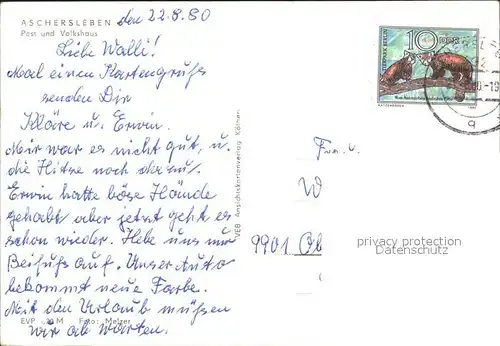 ASCHERSLEBEN
Post und Volkshaus
den 22.8.80
Liebe Walli!
Mal einen Kartengruß
senden Dir
Kläre u. Erwin.
Mir war es nicht gut, u.
die Hitze noch dazu.
Erwin hatte böse Hände
gehabt aber jetzt geht es
schon wieder. Hebe uns nur
Beifuß auf. Unser Auto
bekommt neue Farbe.
Mit den Urlaub müßen
wir ab warten.
EVP M Foto: Melzer
VEB Ansichtskartenverlag Köthen
TIERPARK BERLIN
10 DDR
KATZENBÄREN
a
W
9901 Ob
privacy protection
Datenschutz